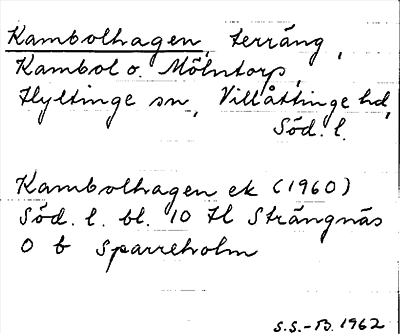 Kambolhagen, terräng,
Kambol o. Mölntorp,
Hyltinge sn, Villåttinge hd,
Söd. l.
Kambolhagen ek (1960)
Söd. l. bl. 10 H Strängnäs
0 b Sparreholm
S.S.-B. 1962